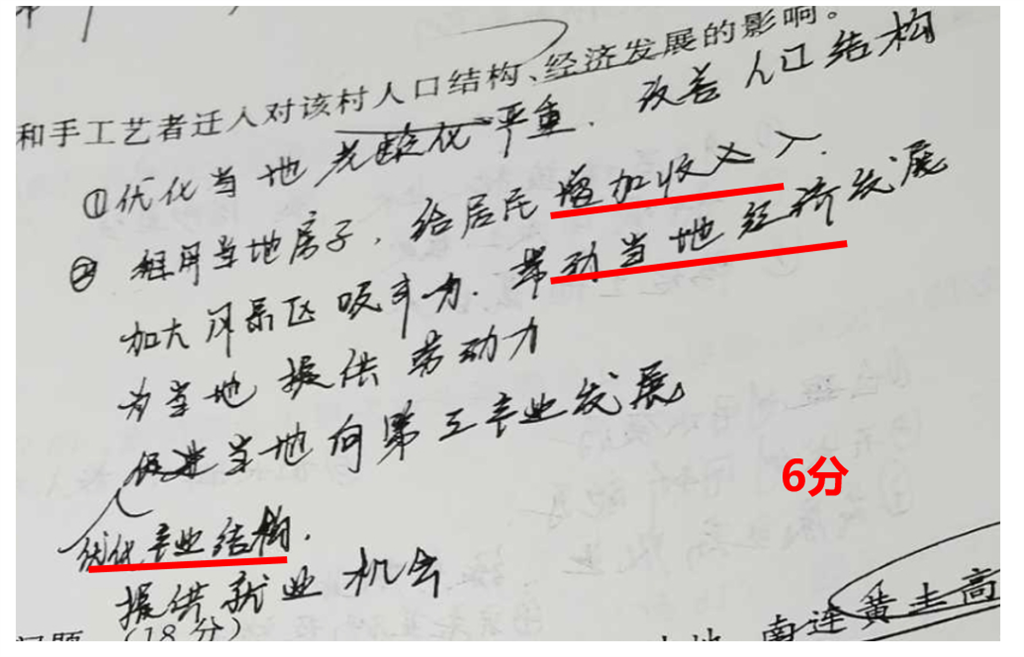 和手工艺者迁人对该村人口结构、经济发展的影响。
①优化当地老龄化严重．改善人口结构
② 租用当地房子，给居民增加收入．
加大风景区吸引力．带动当地经济发展
为当地提供劳动力
促进当地向第三产业发展
优化产业结构．
6分
提供就业机会
问题（18分）
南连黄土高